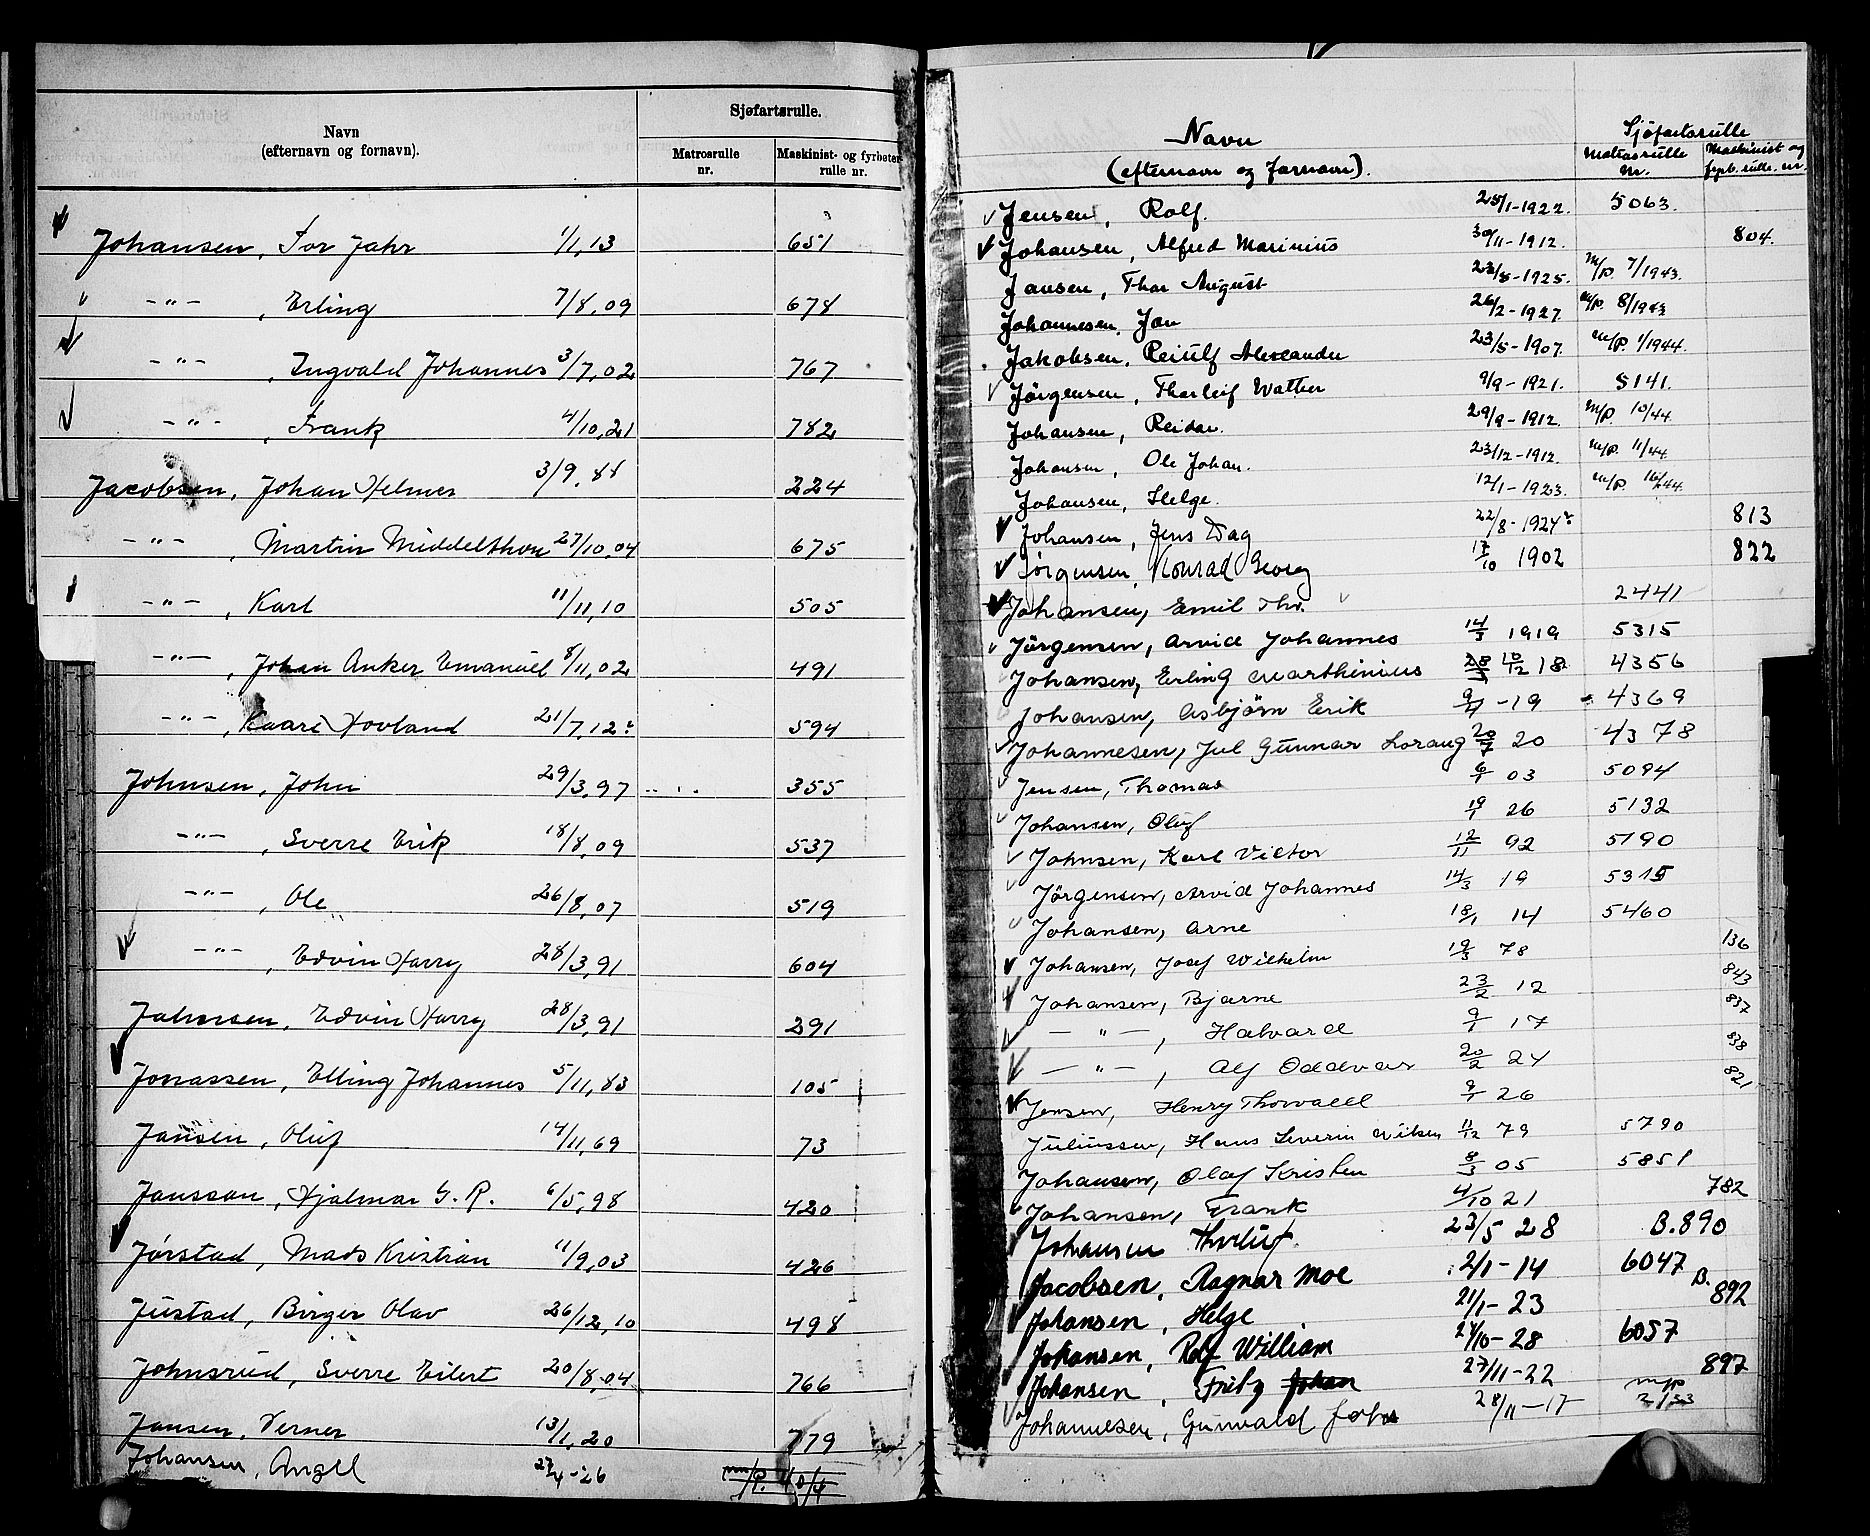 Navn
(efternavn og fornavn).
Sjøfartsrulle.
Matrosrulle
nr.
Maskinist- og fyrbøter
rulle nr.
Johansen, Tor Jahr 1/1,13 651
-"- , Erling 7/8,09 678
-"- , Ingvald Johannes 3/7,02 767
-"- , Frank 4/10,21 782
Jacobsen, Johan Helmer 3/9,88 224
-"- , Martin Middelthon 27/10,04 675
-"- , Karl 11/11,10 505
-"- , Johan Anker Emanuel 8/11,02 491
-"- , Kaare Hovland 21/7,12 594
Johnsen, John 29/3,97 355
-"- , Sverre Erik 18/8,09 537
-"- , Ole 26/8,07 519
-"- , Edvin Harry 28/3,91 604
Johnsen, Edvin Harry 28/3,91 291
Jonassen, Elling Johannes 5/11,83 105
Jansen, Oluf 14/11,69 73
Jansson, Hjalmar G. R. 6/5,98 420
Jørstad, Mads Kristian 11/9,03 426
Justad, Birger Olav 26/12,10 498
Johnsrud, Sverre Eilert 20/8,04 766
Jansen, Verner 13/1,20 779
Johansen, Angel 27/4-26 m/p. 40/4
Navn
(efternavn og fornavn).
Sjøfartsrulle
Matrosrulle
nr.
Maskinist og
fyrb. rulle. nr.
Jensen, Rolf. 25/1-1922. 5063.
Johansen, Alfred Marinius 30/11-1912. 804.
Jansen, Thor August 23/8-1925. M/p. 7/1943.
Johannesen, Jan 26/2-1927. m/p. 8/1943
Jakobsen, Reiulf Alexander 23/5-1907. m/p. 1/1944.
Jørgensen, Thorleif Walther 9/9-1921. 5141.
Johansen, Reidar. 29/9-1912. M/p. 10/44
Johansen, Ole Johan. 23/12-1912. m/p. 11/44
Johansen, Helge. 12/1-1923. m/p. 16/44.
Johansen, Jens Dag 22/8-1924 813
Jørgensen, Konrad Georg 17/10 1902 822
Johansen, Emil Thv. 2441
Jørgensen, Arvid Johannes 14/3 1919 5315
Johansen, Erling Marthinius 10/12 18 4356
Johansen, Asbjørn Erik 9/4-19 4369
Johannesen, Jul Gunnar Lorang 20/7 20 4378
Jensen, Thomas 6/1 03 5094
Johansen, Oluf 19/1 26 5132
Johnsen, Karl Victor 12/11 92 5190
Jørgensen, Arvid Johannes 14/3 19 5315
Johansen, Arne 18/1 14 5460
Johansen, Josef Wilhelm 19/3 78 136
Johansen, Bjarne 23/2 12 843
-"- , Halvard 9/1 17 837
-"- , Alf Oddvar 20/2 24 838
Jensen, Henry Thorvald 9/1 26 821
Juliussen, Hans Severin Nilsen 11/12 79 5790
Johansen, Olaf Kristen 8/3 05 5851
Johansen, Frank 4/10 21 782
Johansen Thorluf. 23/5 28 B.890
Jacobsen, Ragnar Moe 2/1-14 6047
Johansen, Helge 21/1-23 B. 892
Johansen, Rolf William 24/10-28 6057
Johansen, Fritz Johan 27/11-22 897
Johannesen, Gunvald 28/11-17 m/p 2/53